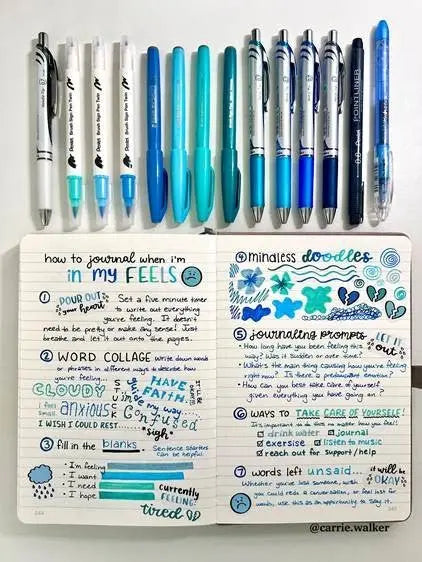 Pentel Brush Sign Pen Twin
Pentel Brush Sign Pen Twin
Pentel Brush Sign Pen Twin
POINTLINER
how to journal when i'm
in my FEELS
1 POUR OUT
your heart
Set a five minute timer
to write out everything
you're feeling. It doesn't
need to be pretty or make any sense! Just
breathe and let it out onto the pages.
2 WORD COLLAGE Write down words
or phrases in different ways to describe how
you're feeling...
CLOUDY
STUck
HAVE
FAITH.
guide my way
I feel
small
anxious
Confused
I WISH I COULD REST
*sigh*
3 fill in the blanks
Sentence starters
can be helpful.
• I'm feeling
• I want
• I need
• I hope
currently
FEELING:
tired
4 mindless doodles
5 journaling prompts
LET IT
out
• How long have you been feeling this
way? Was it sudden or over time?
• What's the main thing causing how you're feeling
right now? Is there a predominant emotion?
• How can you best take care of yourself
given everything you have going on?
6 WAYS to TAKE CARE OF YOURSELF!
It's important to do this no matter how you feel!
drink water
journal
exersise
listen to music
reach out for support/help
7 words left unsaid...
it will be
OKAY
Whether you've lost someone, wish
you could redo a conversation, or feel lost for
words, use this as an opportunity to say it.
@carrie.walker